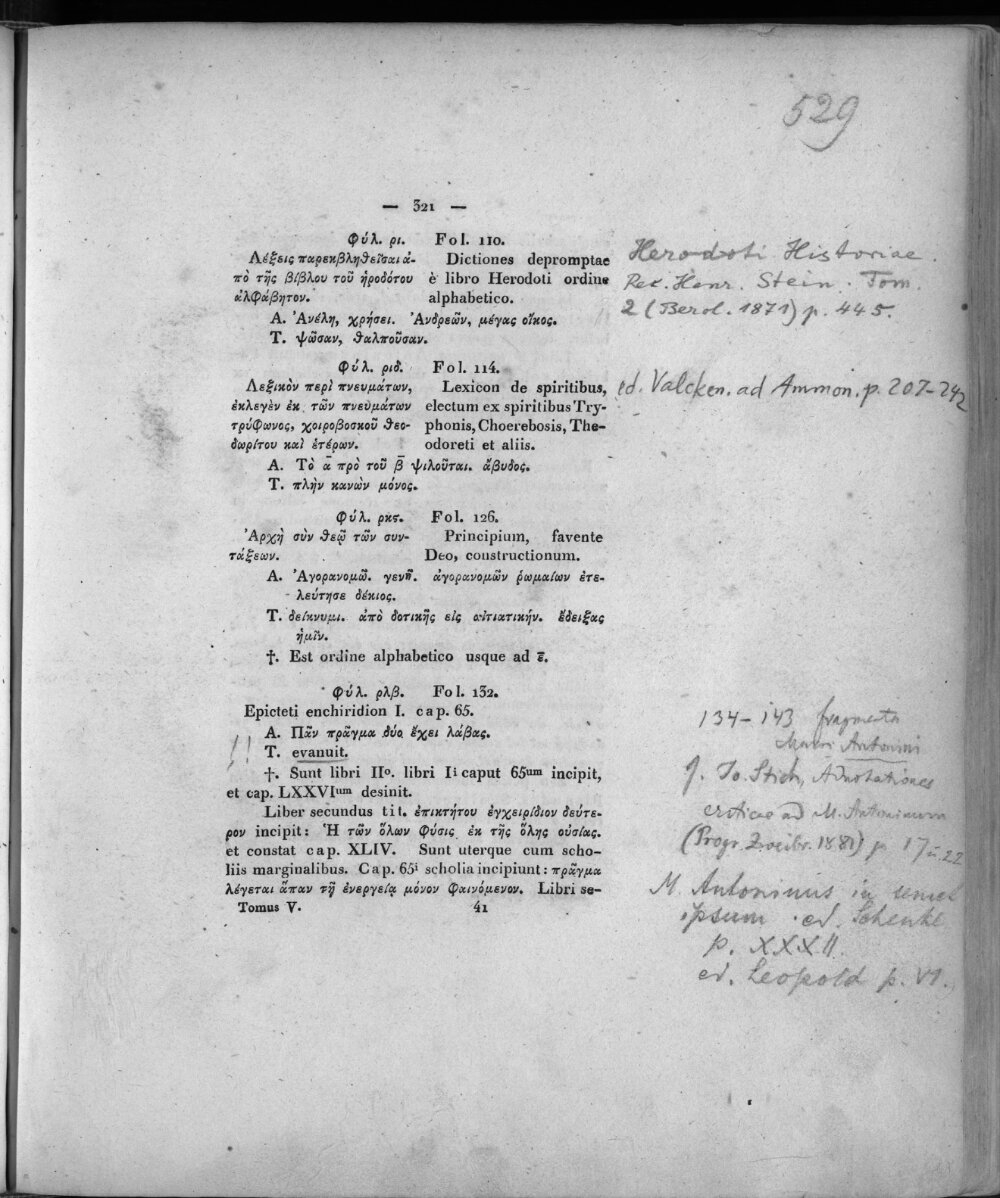 529
— 321 —
Φύλ. ρι. Fol. 110.
Λέξεις παρεκβληθεῖσαι ἀ- Dictiones depromptae
πὸ τῆς βίβλου τοῦ ἡροδότου è libro Herodoti ordine
ἀλφάβητον. alphabetico.
Herodoti Historiae.
Rec. Henr. Stein. Tom.
2 (Berol. 1871) p. 445.
Α. Ἀνέλη, χρήσει. Ἀνδρεῶν, μέγας οἶκος.
Τ. ψῶσαν, θαλποῦσαν.
Φύλ. ριδ. Fol. 114.
Λεξικὸν περὶ πνευμάτων, Lexicon de spiritibus,
ed. Valcken. ad Ammon. p. 207-242
ἐκλεγὲν ἐκ τῶν πνευμάτων electum ex spiritibus Try-
τρύφωνος, χοιροβοσκοῦ θεο- phonis, Choerebosis, The-
δωρίτου καὶ ἑτέρων. odoreti et aliis.
Α. Τὸ ᾱ πρὸ τοῦ β̄ ψιλοῦται. ἄβυδος.
Τ. πλὴν κανὼν μόνος.
Φύλ. ρκς. Fol. 126.
Ἀρχὴ σὺν θεῷ τῶν συν- Principium, favente
τάξεων. Deo, constructionum.
Α. Ἀγορανομῶ. γενῆ. ἀγορανομῶν ῥωμαίων ἐτε-
λεύτησε δέκιος.
Τ. δείκνυμι. ἀπὸ δοτικῆς εἰς αἰτιατικήν. ἔδειξας
ἡμῖν.
†. Est ordine alphabetico usque ad ε̄.
Φύλ. ρλβ. Fol. 132.
Epicteti enchiridion I. cap. 65.
Α. Πᾶν πρᾶγμα δύο ἔχει λάβας.
!! T. evanuit.
†. Sunt libri IIo. libri Ii caput 65um incipit,
et cap. LXXVIum desinit.
Liber secundus tit. ἐπικτήτου ἐγχειρίδιον δεύτε-
ρον incipit: Ἡ τῶν ὅλων φύσις ἐκ τῆς ὅλης οὐσίας.
et constat cap. XLIV. Sunt uterque cum scho-
liis marginalibus. Cap. 65i scholia incipiunt: πρᾶγμα
λέγεται ἅπαν τῇ ἐνεργείᾳ μόνον φαινόμενον. Libri se-
Tomus V. 41
134-143 fragmenta
Marci Antonini
J. Jo. Stich, Adnotationes
criticae ad M. Antoninum
(Progr. Zweibr. 1881) p 17 u. 22
M. Antoninus in semet
ipsum ed. Schenkl
p. XXXII.
ed. Leopold p. VI.